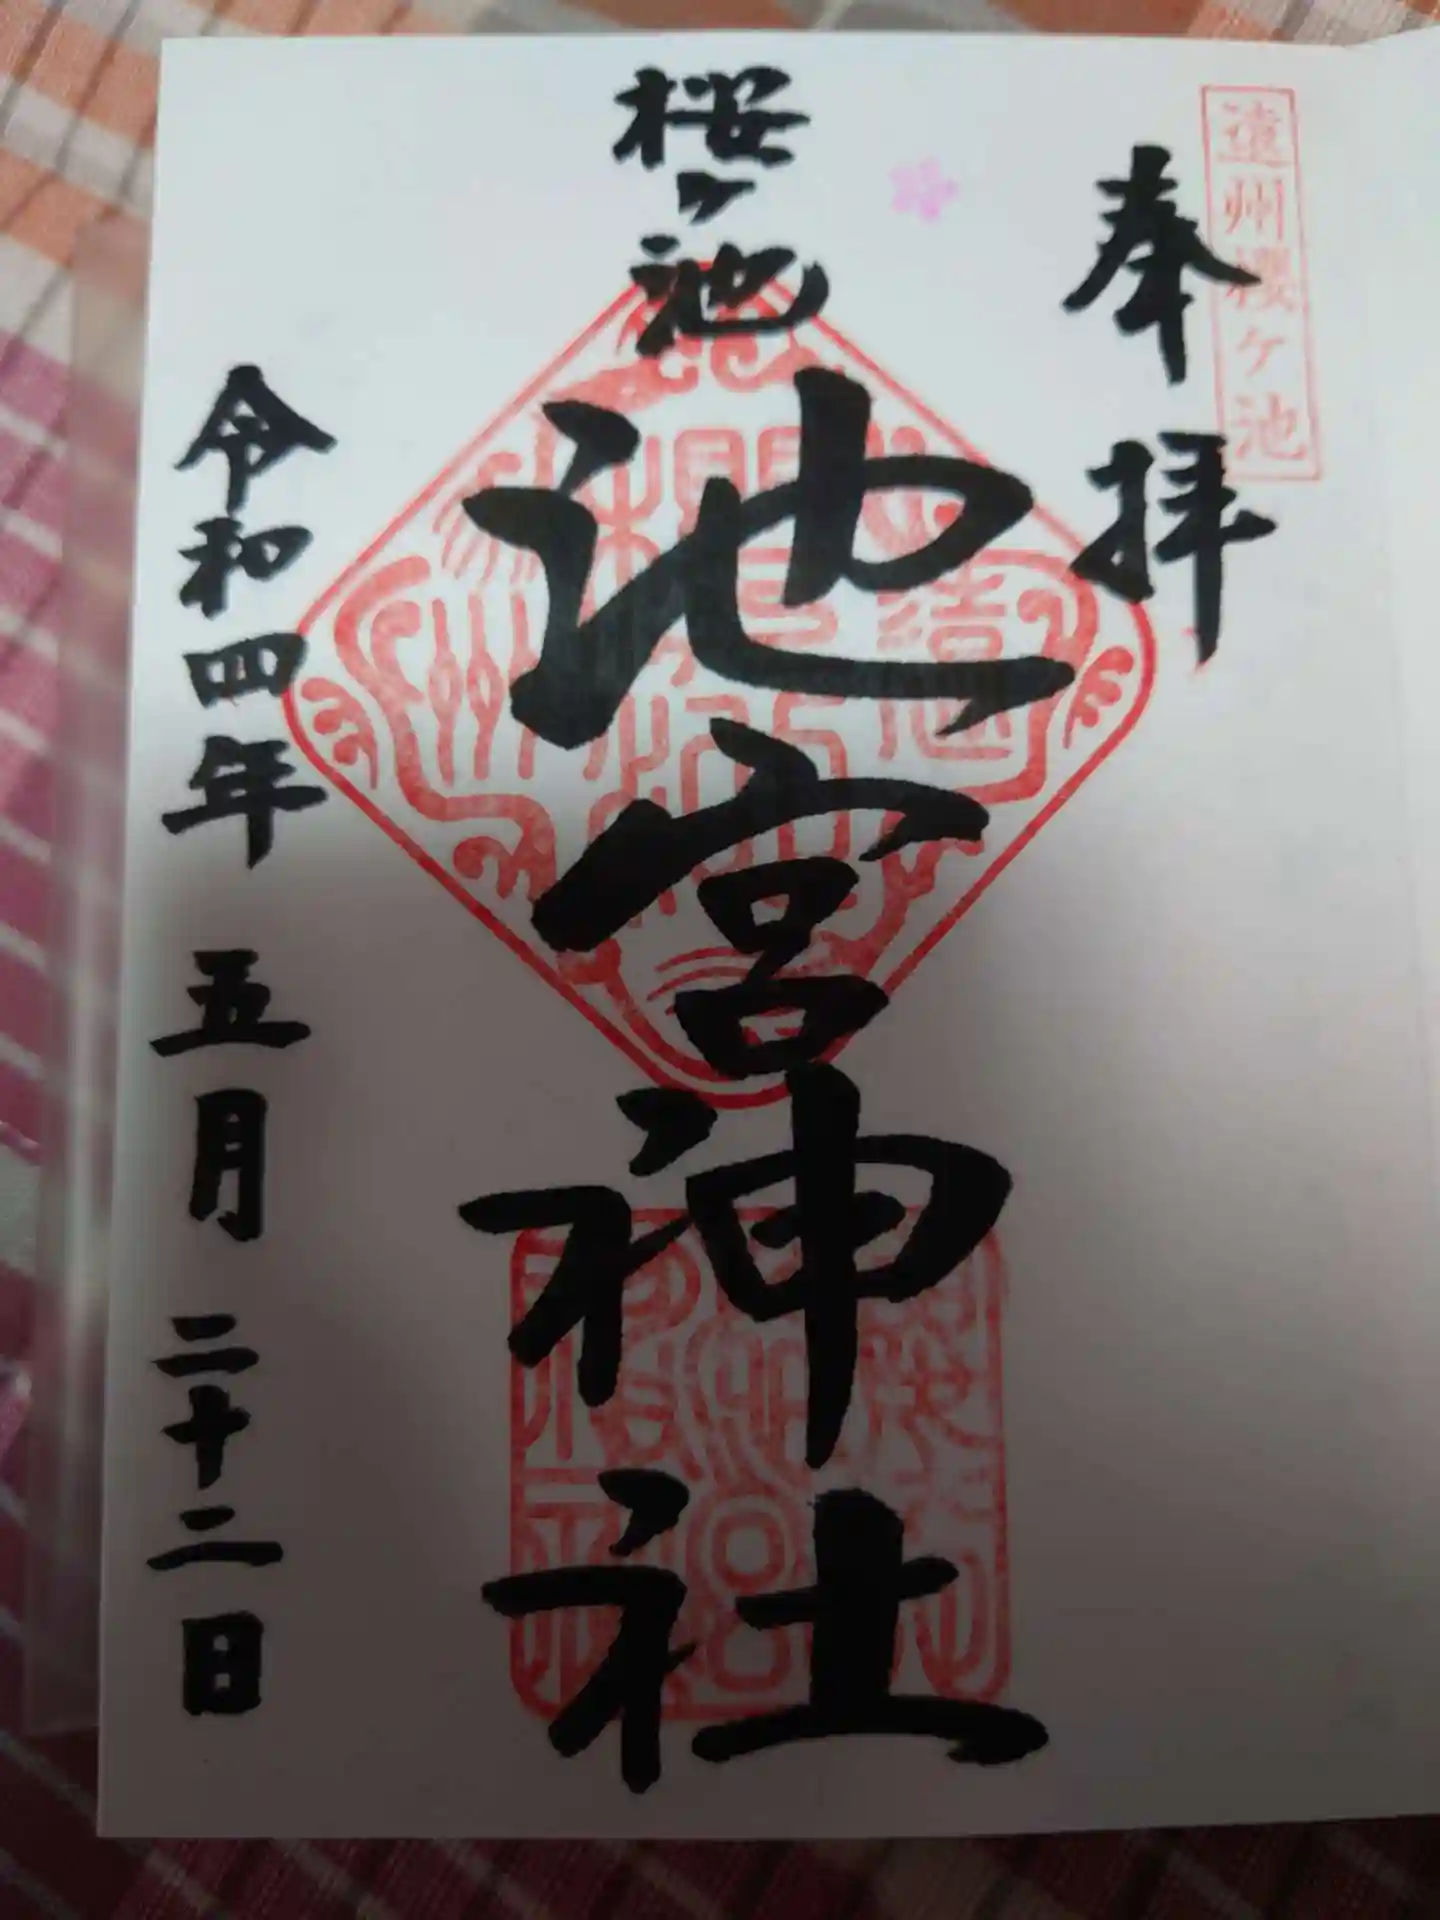 遠州櫻ヶ池
奉拝
桜ヶ池
池宮神社
令和四年 五月 二十二日